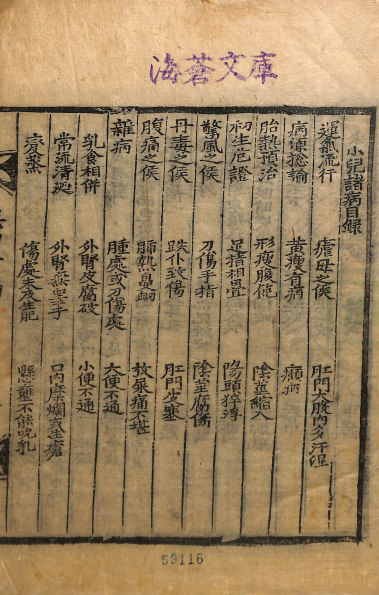 海蒼文庫
小兒諸病目錄
運氣流行 瘧母之候 肛門大股內多汗湿
病源摠論 黃瘦有病 㿗疝
胎熱預治 形瘦腹飽 陰莖縮入
初生危證 足指相疊 陽頭猝浮
驚風之候 刀傷手指 陰莖腐傷
丹毒之候 跌仆致傷 肛門皮塞
腹痛之候 肺熱鼻衂 放尿痛不堪
雜病 腫處或刀傷處 大便不通
乳食相併 外腎皮腐破 小便不通
常流清涎 外腎無睾子 口內糜爛或生瘡
蒸 傷處未及 懸壅不能吮乳
59116